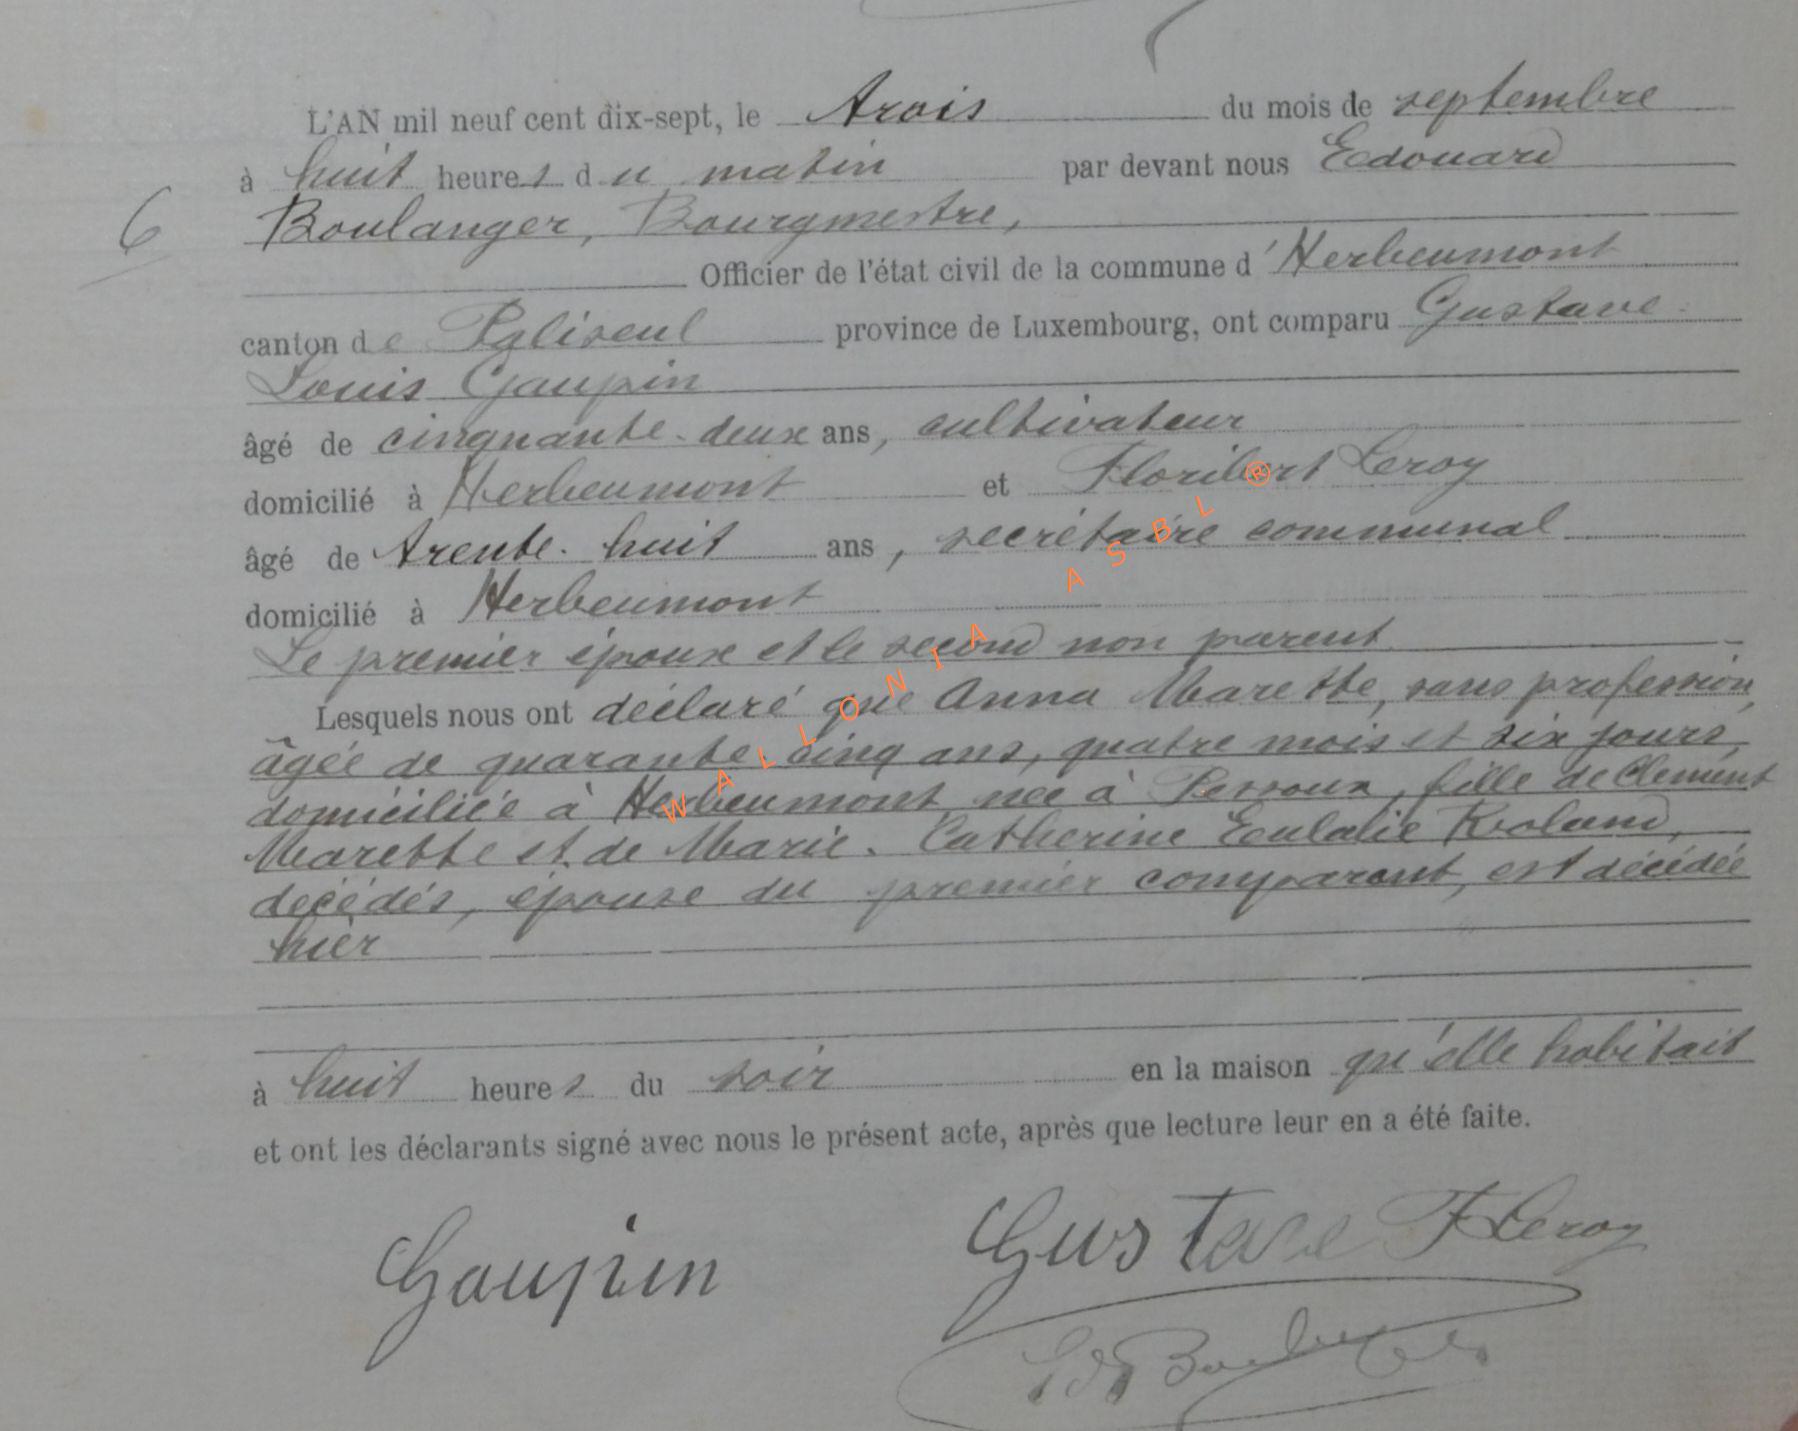 L'AN mil neuf cent dix-sept, le trois du mois de septembre
à huit heures du matin par devant nous Edouard
6
Boulanger, Bourgmestre,
Officier de l'état civil de la commune d'Herbeumont
canton de Paliseul province de Luxembourg, ont comparu Gustave
Louis Goupin
âgé de cinquante-deux ans, cultivateur
domicilié à Herbeumont et Floribert Leroy
âgé de trente-huit ans, secrétaire communal
domicilié à Herbeumont
Le premier époux et le second non parent
Lesquels nous ont déclaré que Anna Marette, sans profession,
âgée de quarante-cinq ans, quatre mois et six jours,
domiciliée à Herbeumont née à , fille de Clément
Marette et de Marie-Catherine Eulalie Roland,
décédés, épouse du premier comparant, est décédée
hier
à huit heures du soir en la maison qu'elle habitait
et ont les déclarants signé avec nous le présent acte, après que lecture leur en a été faite.
Goupin Gustave FLeroy
Ed Boulanger
WALLONIA ASBL ®